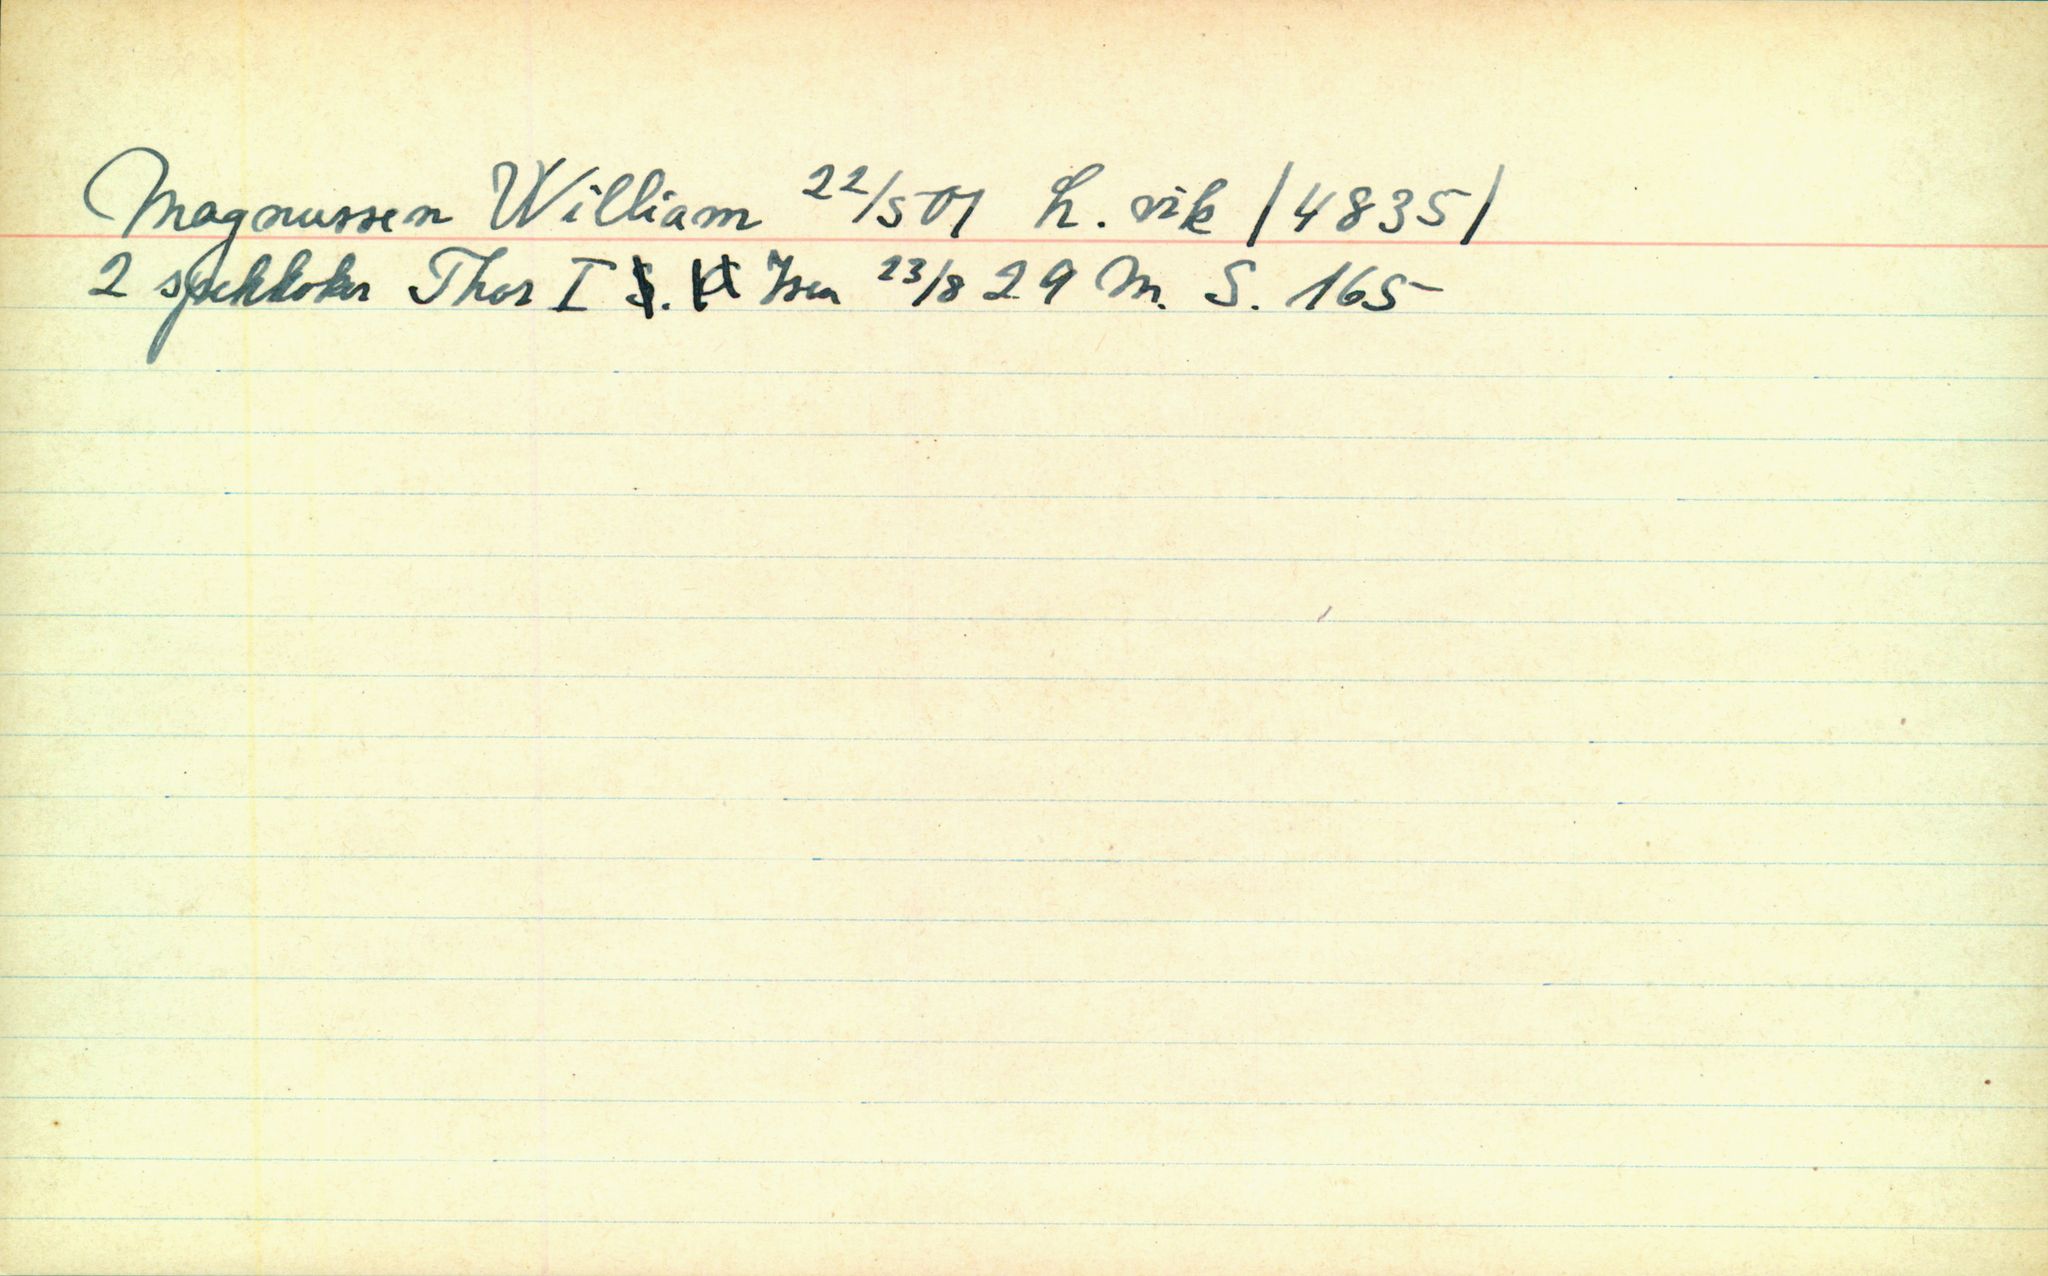 Magnussen William 22/5 01 L. vik /4835/
2 spekkoker Thor I Isen 23/8 29 M. S. 165